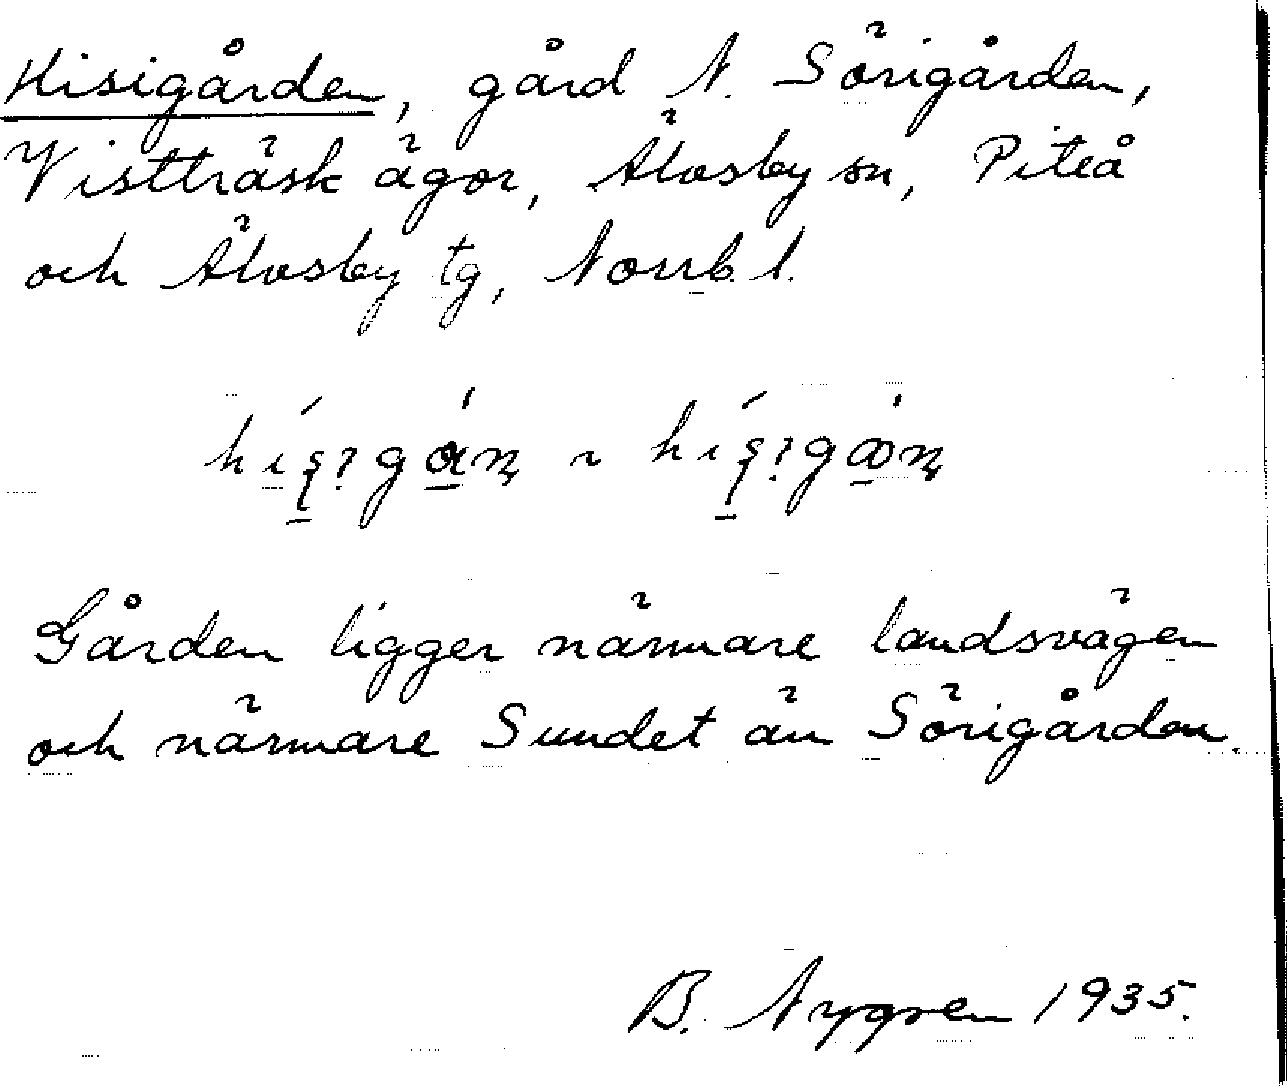 Hisigården, gård N. Sörigården,
Vistträsk ägor, Älvsby sn, Piteå
och Älvsby tg, Norrb. l.
Gården ligger närmare landsvägen
och närmare Sundet än Sörigården.
B. Nygren 1935.